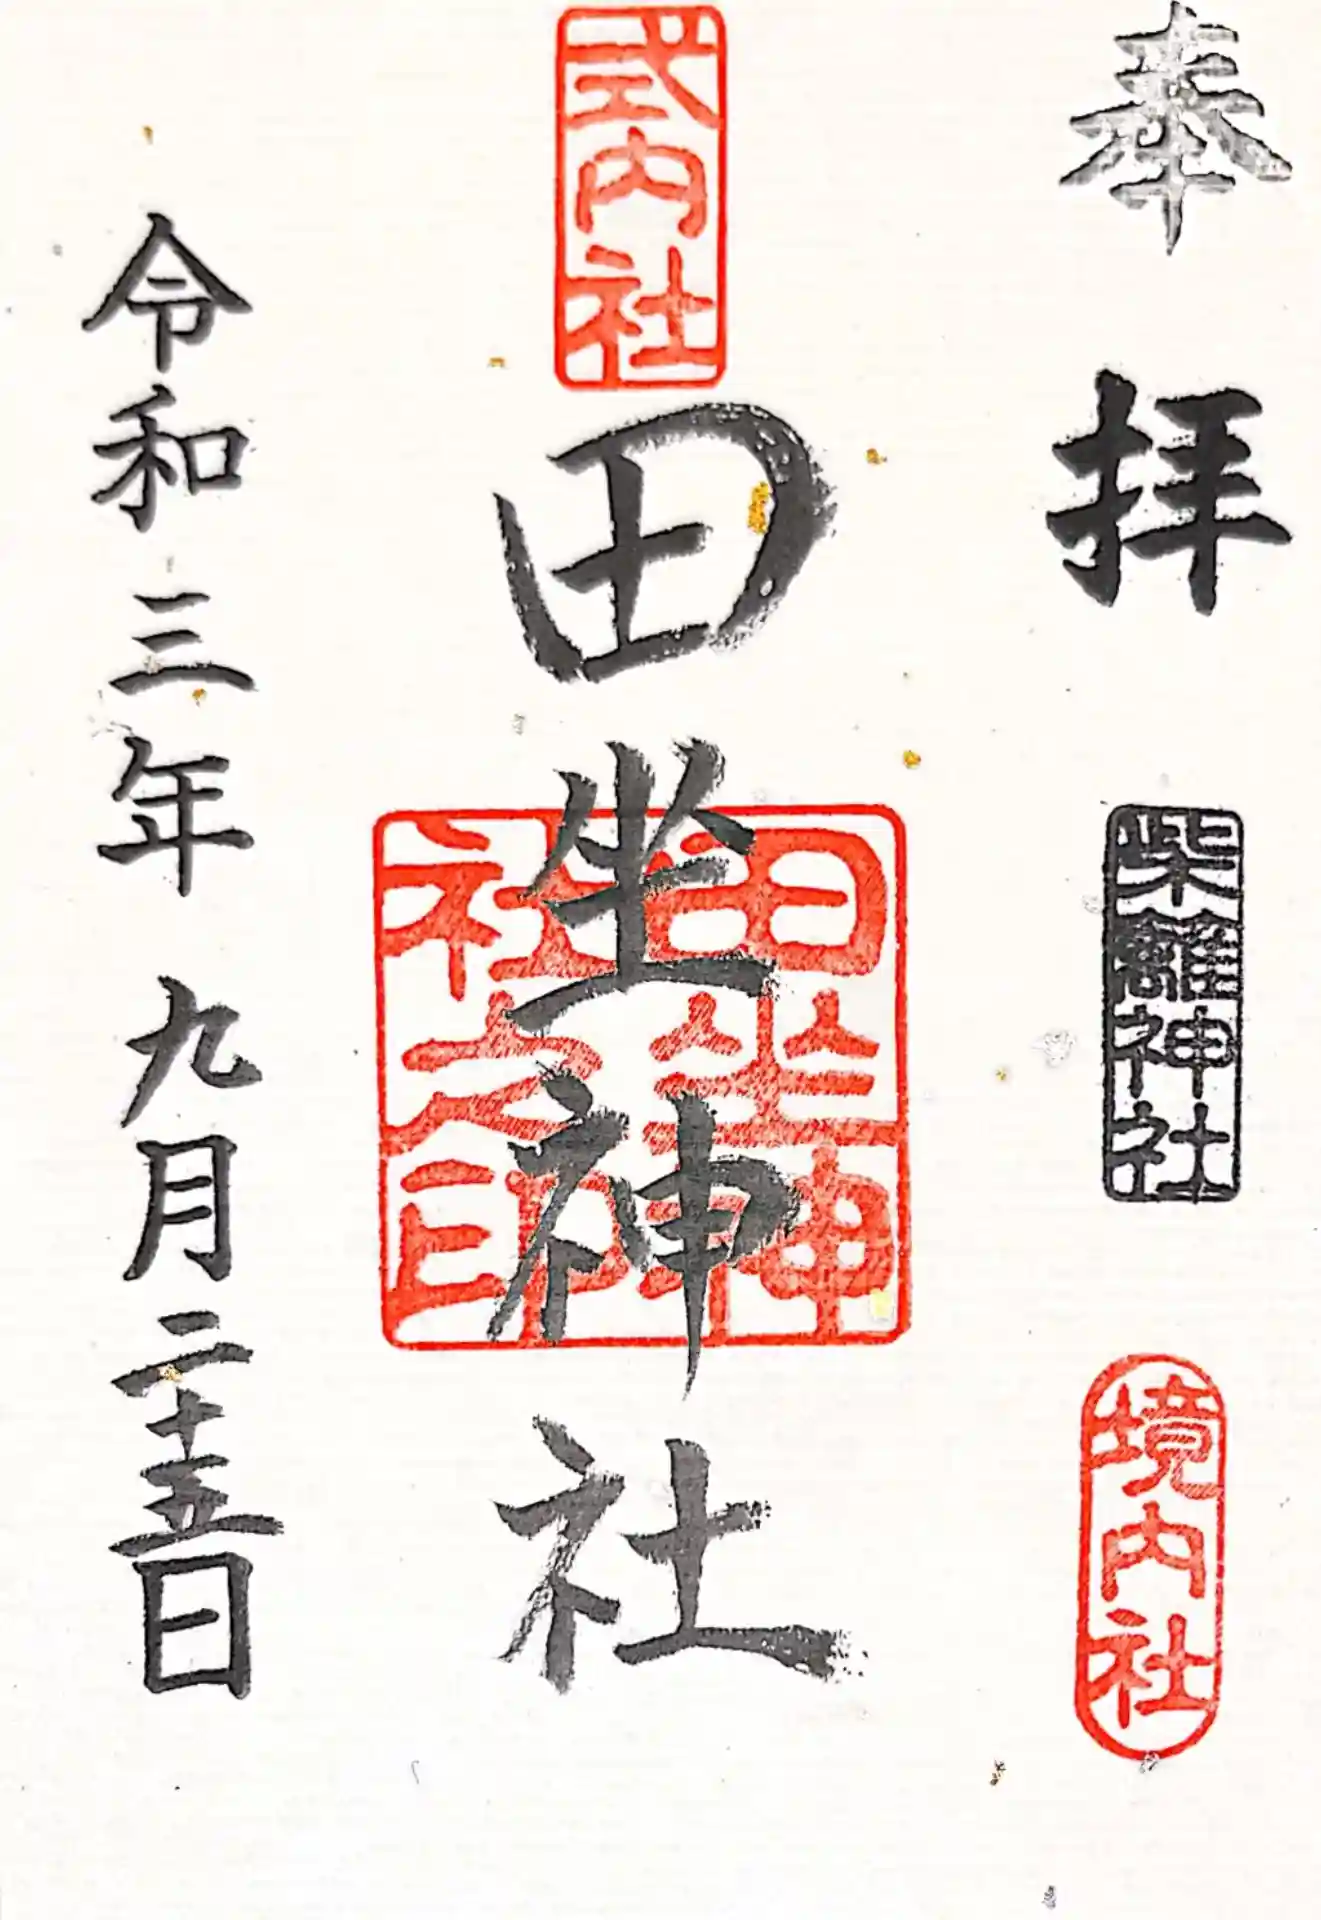 奉拝
柴籬神社
境内社
式内社
田坐神社
田坐神
社之印
令和三年九月二十五日